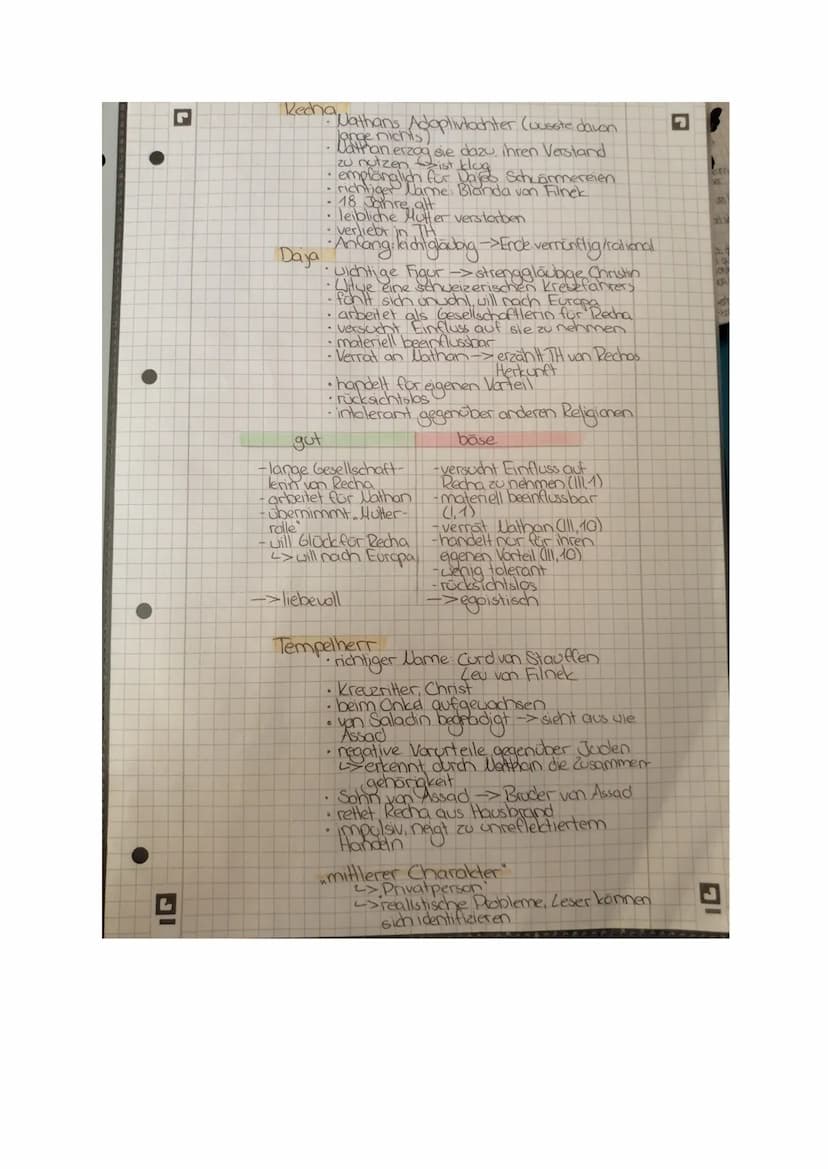 Recha
· Nathans Adoptivtochter (wusste davon
lange nichts)
· Nathan erzog sie dazu, ihren Verstand
zu nutzen ↳ ist klug
· empfänglich für Dajas Schwärmereien
· richtiger Name: Blanda von Filnek
· 18 Jahre alt
· leibliche Mutter verstorben
· verliebt in TH
· Anfang: leichtgläubig -> Ende vernünftig/rational
Daja
· wichtige Figur -> strenggläubige Christin
· Witwe eine schweizerischen Kreuzfahrers
· fühlt sich unwohl, will nach Europa
· arbeitet als Gesellschafterin für Recha
· versucht Einfluss auf sie zu nehmen
· materiell beeinflussbar
· Verrat an Nathan -> erzählt TH von Rechas
Herkunft
· handelt für eigenen Vorteil
· rücksichtslos
· intolerant gegenüber anderen Religionen
gut böse
- lange Gesellschaft- - versucht Einfluss auf
lerin von Recha Recha zu nehmen (III,1)
- arbeitet für Nathan - materiell beeinflussbar
- übernimmt „Mutter- (I,1)
rolle" - verrät Nathan (III,10)
- will Glück für Recha - handelt nur für ihren
↳ will nach Europa eigenen Vorteil (III,10)
- wenig tolerant
- rücksichtslos
-> liebevoll -> egoistisch
Tempelherr
· richtiger Name: Curd von Stauffen
Leu von Filnek
· Kreuzritter, Christ
· beim Onkel aufgewachsen
· von Saladin begnadigt -> sieht aus wie
Assad
· negative Vorurteile gegenüber Juden
↳ erkennt durch Nathan die Zusammen-
gehörigkeit
· Sohn von Assad -> Bruder von Assad
· rettet Recha aus Hausbrand
· impulsiv, neigt zu unreflektiertem
Handeln
„mittlerer Charakter"
↳ „Privatperson"
↳ realistische Probleme, Leser können
sich identifizieren